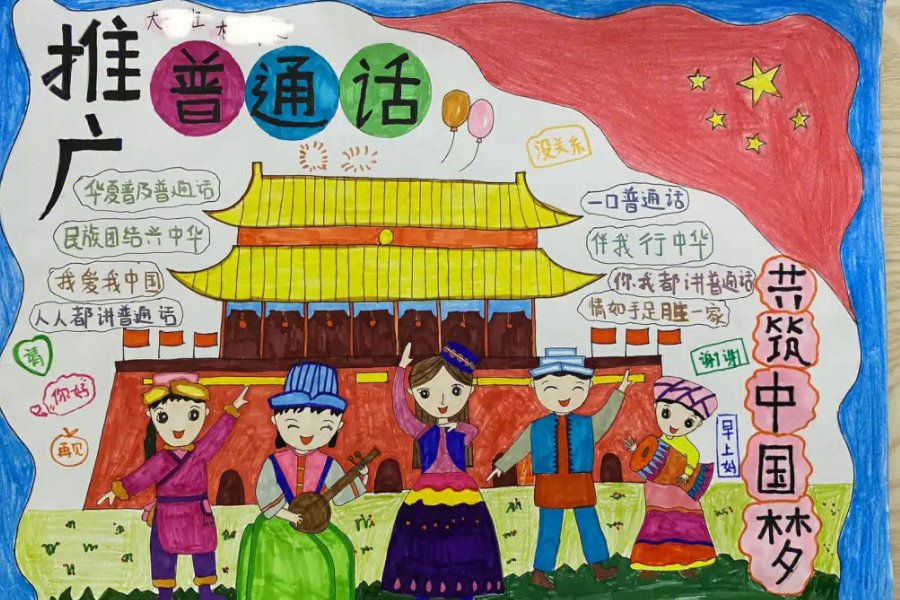 推广
普通话
华夏普及普通话
民族团结兴中华
我爱我中国
人人都讲普通话
请
你好
再见
没关系
一口普通话
伴我行中华
你我都讲普通话
情如手足胜一家
谢谢
早上好
共筑中国梦